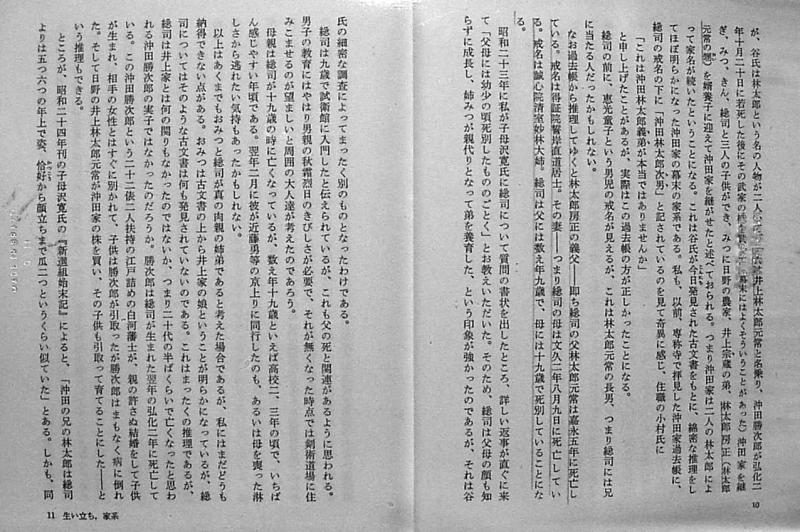 が、谷氏は林太郎という名の人物が二人
井上林太郎元常と名乗り、沖田勝次郎が弘化二
年十月二十日に若死した後にその武家の株を
幕末にはよくそういうことがあった)沖田家を継
ぎ、みつ、きん、総司と三人の子供ができ、みつに日野の農家、井上宗蔵の弟、林太郎房正(林太郎
元常の甥)を婿養子に迎えて沖田家を継がせたと述べておられる。つまり沖田家は二人の林太郎によ
って家名が続いたということになる。これは谷氏が今日発見された古文書をもとに、綿密な推理をし
てほぼ明らかになった沖田家の幕末の家系である。私も、以前、専称寺で拝見した沖田家過去帳に、
総司の戒名の下に「沖田林太郎次男」と記されているのを見て奇異に感じ、住職の小村氏に
「これは沖田林太郎義弟が本当ではありませんか」
と申し上げたことがあるが、実際はこの過去帳の方が正しかったことになる。
総司の前に、恵光童子という男児の戒名が見えるが、これは林太郎元常の長男、つまり総司には兄
に当たる人だったかもしれない。
なお過去帳から推理してゆくと林太郎房正の義父――即ち総司の父林太郎元常は嘉永五年に死亡し
ている。戒名は得証院誓岸直道居士。その妻――つまり総司の母は文久二年八月九日に死亡してい
る。戒名は誠心院清室妙林大姉。総司は父には数え年九歳で、母には十九歳で死別していることにな
る。
昭和二十三年に私が子母沢寛氏に総司について質問の書状を出したところ、詳しい返事が直ぐに来
て「父母には幼少の頃死別したもののごとく」とお教えいただいた。そのため、総司は父母の顔も知
らずに成長し、姉みつが親代りとなって弟を養育した、という印象が強かったのであるが、それは谷
10
氏の細密な調査によってまったく別のものとなったわけである。
総司は九歳で試衛館に入門したと伝えられているが、これも父の死と関連があるように思われる。
男子の教育にはやはり男親の秋霜烈日のきびしさが必要で、それが無くなった時点では剣術道場に住
みこませるのが望ましいと周囲の大人達が考えたのであろう。
母親は総司が十九歳の時に亡くなっているが、数え年十九歳といえば高校二、三年の頃で、いちば
ん感じやすい年頃である。翌年二月に彼が近藤勇等の京上りに同行したのも、あるいは母を喪った淋
しさから逃れたい気持もあったかもしれない。
以上はあくまでもおみつと総司が真の肉親の姉弟であると考えた場合であるが、私にはまだどうも
納得できない点がある。おみつは古文書の上から井上家の娘ということが明らかになっているが、総
司についてはそのような古文書は何も発見されていないのである。これはまったくの推理であるが、
総司は井上家とは何の関りもなかったのではないか、つまり二十代の半ばくらいで亡くなったと思わ
れる沖田勝次郎の実子ではなかったのだろうか。勝次郎は総司が生まれた翌年の弘化二年に死亡して
いる。この沖田勝次郎という二十二俵二人扶持の江戸詰めの白河藩士が、親の許さぬ結婚をして子供
が生まれ、相手の女性とはすぐに別かれて、子供は勝次郎が引取ったが勝次郎はまもなく病に倒れ
た。そして日野の井上林太郎元常が沖田家の株を買い、その子供も引取って育てることにした――と
いう推理もできる。
ところが、昭和二十四年刊の子母沢寛氏の『新選組始末記』によると、「沖田の兄の林太郎は総司
よりは五つ六つの年上で姿、恰好から顔立ちまで瓜二つというくらい似ていた」とある。しかも、同
11 生い立ち、家系